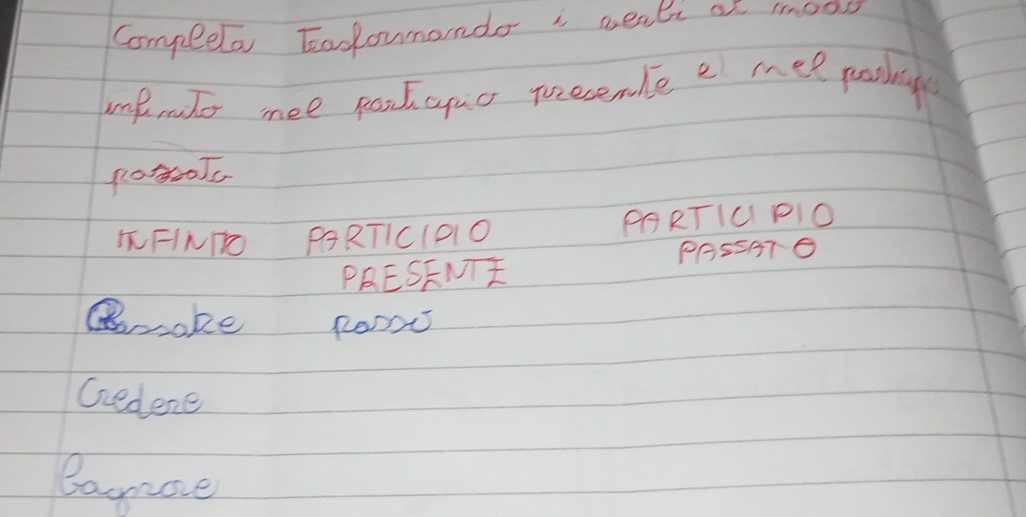 Completa Trasformando i verbi al modo
infinito nel participio presente e nel participio
passato
INFINITO PARTICIPIO PARTICIPIO
PRESENTE PASSATO
passò
Credere
Bagnare